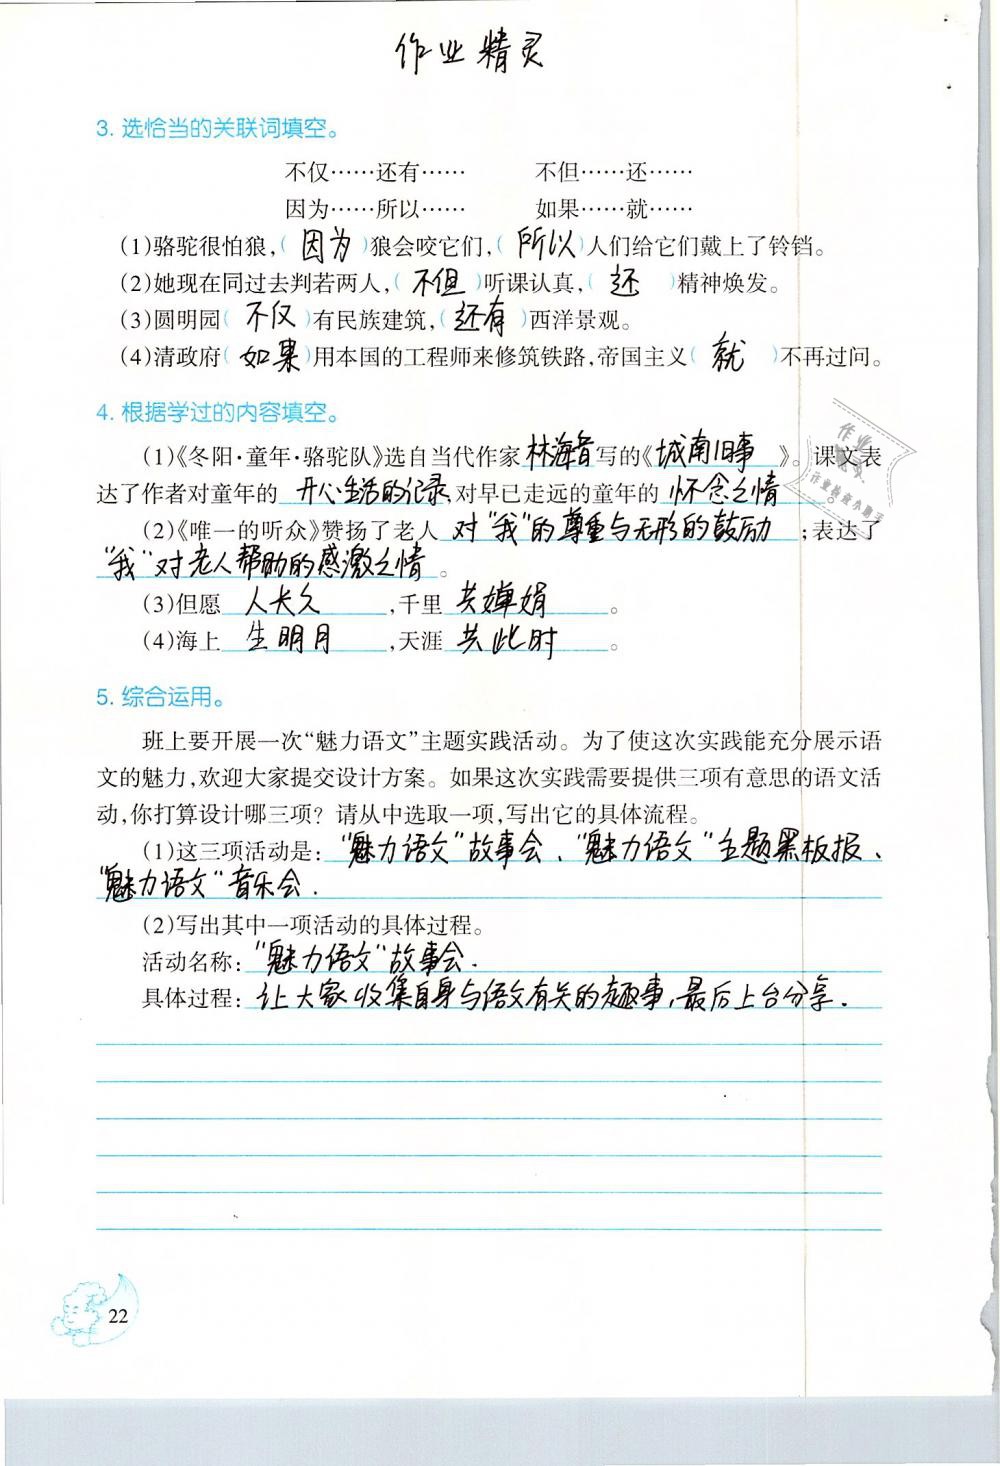 作业精灵
3. 选恰当的关联词填空。
不仅……还有…… 不但……还……
因为……所以…… 如果……就……
(1)骆驼很怕狼,( 因为 )狼会咬它们,( 所以 )人们给它们戴上了铃铛。
(2)她现在同过去判若两人,( 不但 )听课认真,( 还 )精神焕发。
(3)圆明园( 不仅 )有民族建筑,( 还有 )西洋景观。
(4)清政府( 如果 )用本国的工程师来修筑铁路,帝国主义( 就 )不再过问。
4. 根据学过的内容填空。
(1)《冬阳·童年·骆驼队》选自当代作家林海音写的《城南旧事》。课文表
达了作者对童年的 开心生活的记录 对早已走远的童年的 怀念之情 。
(2)《唯一的听众》赞扬了老人 对“我”的尊重与无形的鼓励 ;表达了
“我”对老人帮助的感激之情。
(3)但愿 人长久 ,千里 共婵娟 。
(4)海上 生明月 ,天涯 共此时 。
作业
精灵
作业检查小助手
5. 综合运用。
班上要开展一次“魅力语文”主题实践活动。为了使这次实践能充分展示语
文的魅力,欢迎大家提交设计方案。如果这次实践需要提供三项有意思的语文活
动,你打算设计哪三项?请从中选取一项,写出它的具体流程。
(1)这三项活动是:“魅力语文”故事会、“魅力语文”主题黑板报、
“魅力语文”音乐会.
(2)写出其中一项活动的具体过程。
活动名称:“魅力语文”故事会.
具体过程: 让大家收集自身与语文有关的趣事,最后上台分享.
22